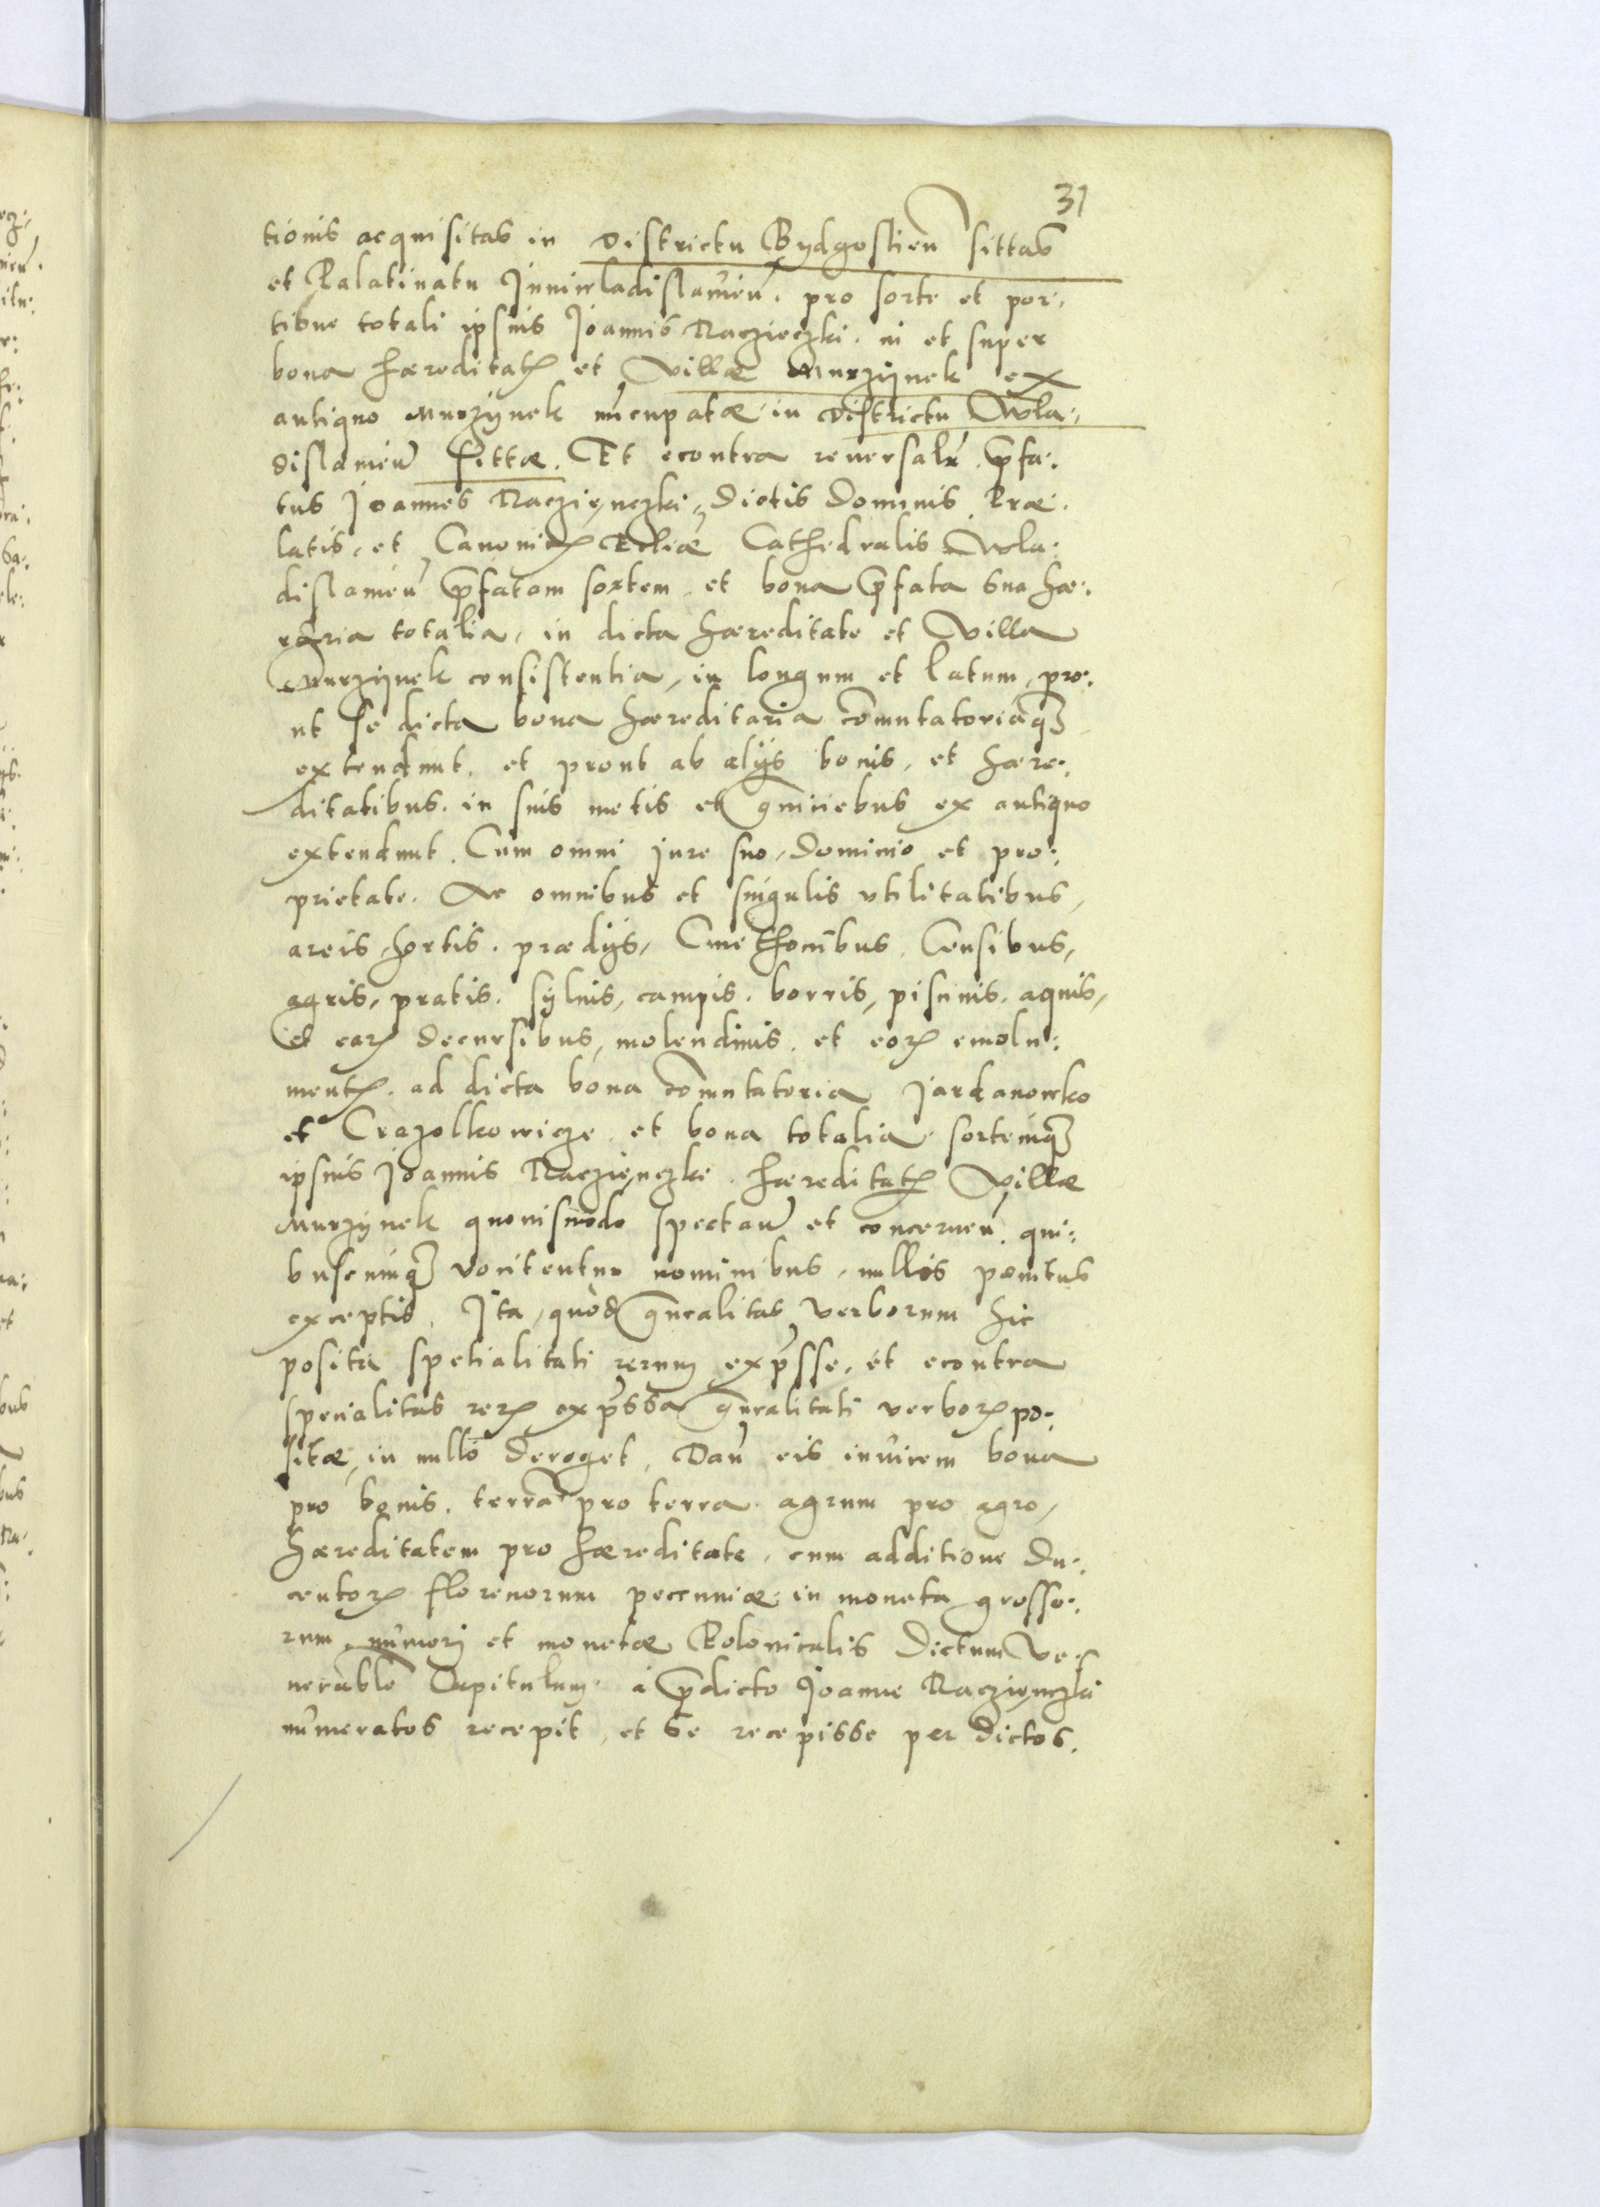 31
tionis acquisitas in districtu Bydgostien̄ sittas
et Palatinatu Iuniwladislauien̄. pro sorte et por:
tione totali ipsius Joannis Raczieczki. in et super
bona hæreditatꝝ et villæ Murzijnek ex
antiquo Murzijnek nūcupatæ in districtu Wla:
dislauien̄ sittæ. Et econtra reuersalr̄ p̄fa:
tus Joannes Raczięnczki, dictis Dominis Præ:
latis, et Canonicꝝ Ecl̄iæ Cathedralis Wla:
dislauien̄ p̄fatam sortem, et bona p̄fata sua hæ:
rd̄ria totalia, in dicta hæreditate et villa
Murzijnek consistentia, in longum et latum, pro:
ut se dicta bona hæreditaria cōmutatoriaqꝫ
extendunt, et prout ab alijs bonis, et hære:
ditatibus in suis metis et g̃niciebus ex antiquo
extendunt. Cum omni jure suo, Dominio et pro:
prietate. Ac omnibus et singulis vtilitatibus,
areis, hortis, prædijs, Cmethonibus, Censibus,
agris, pratis, syluis, campis, borris, piscinis, aquis,
et earꝝ decursibus, molendinis, et eorꝝ emolu:
mentꝝ. ad dicta bona cōmutatoria Jardanowko
et Crazolkowicze, et bona totalia sortemqꝫ
ipsius Joannis Raczięnczki hæreditatꝝ villæ
Murzynek quouismodo spectan̄ et concernen̄. qui:
buscumqꝫ vocitentur nominibus, nullis pænitus
exceptis. Ita, quòd gn̄ealitas verborum hic
posita spetialitati rerum exp̄sse, et econtra
specialitas rerꝝ exp̄ssa gn̄ralitati verborꝝ po:
sitæ, in nullo deroget, Dan̄ eis inuicem bona
pro bonis, terrā pro terra, agrum pro agro,
hæreditatem pro hæreditate, cum additione du:
centorꝝ florenorum peccuniæ in moneta grosso:
rum, numeri et monetæ Polonicalis dictum ve:
nerable Capitulum à p̄dicto Joanne Raczięnczki
numeratos recepit, et se recepisse per dictos.